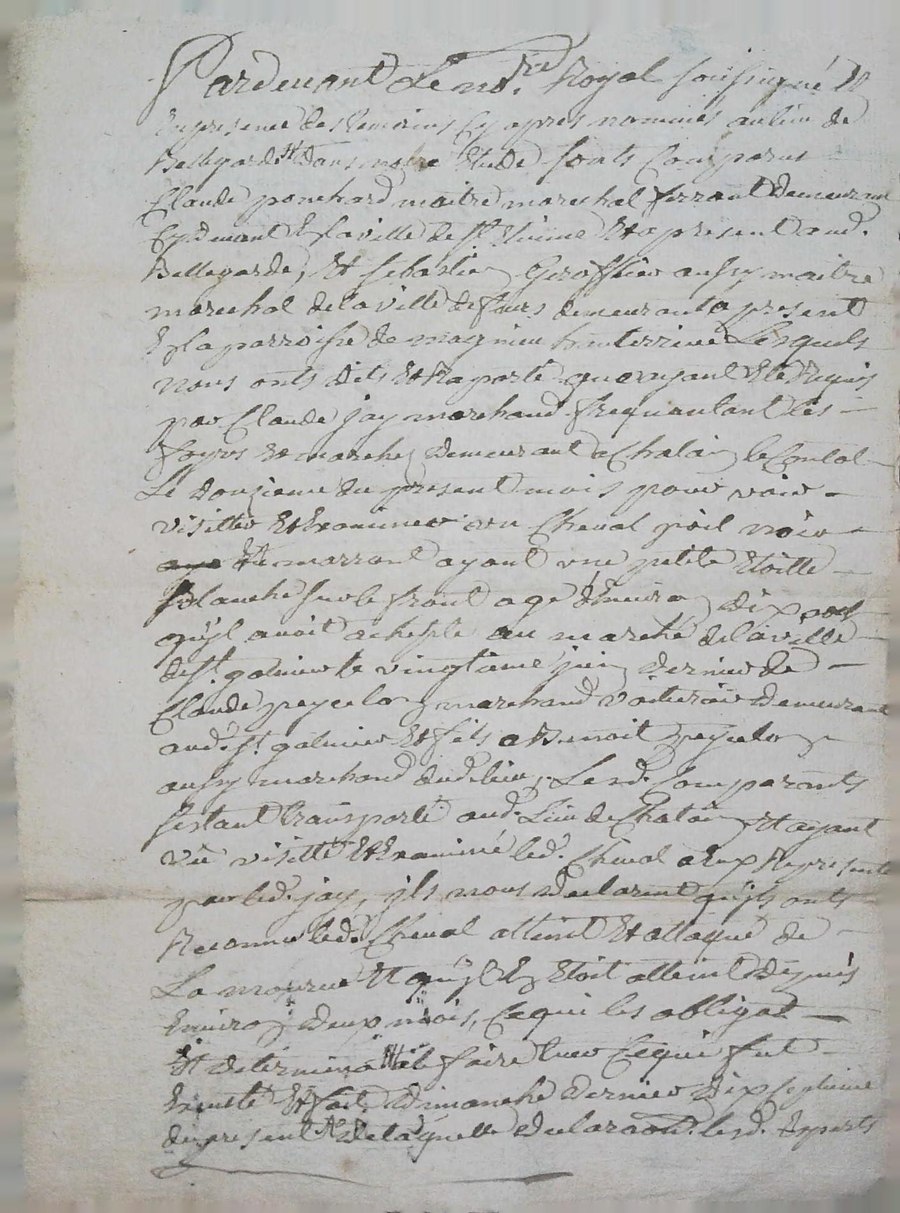 Pardevant Le no.re Royal soussigné Et
En presence des temoins Cy apres nommés au lieu de
Bellegarde Et dans notre Etude sonts Comparus
Claude ponchard maitre marechal ferrant demeurant
Cydevant En la ville de st Etienne Et a present aud.
Bellegarde, Et sebastien aussy maitre
marechal de la ville de feurs demeurant a present
En la parroisse de magnieu hauterive Lesquels
nous onts dits Et Raporté quayant Eté Requis
par Claude jay marchand frequantant les
foyres Et marchez demeurant a Chalain le Comtal
Le douzieme du present mois pour voir
visitter Et Examiner un Cheval poil noir
marront ayant une petite Etoille
Blanche sur le front agé denviron dix ans
quyl avoit achepté au marché de la ville
de st. galmier le vingtieme juin dernier de
Claude peycelon marchand voiturier demeurant
aud. st. galmier Et fils a Benoit peycelon
aussy marchand dud. lieu, Lesd. Comparants
sestant transporté aud. Lieu de Chalain Et ayant
vu visitté Et Examiné led. Cheval a Eux Representé
par led. jay, jls nous declarent quyls onts
Reconnu led. Cheval atteint Et attaqué de
La mourve Et quyl En Etoit atteint depuis
Environ deux mois, Ce qui les obligat
Et determina a le faire tuer Ce qui fut
Executé Et fait dimanche dernier dix septieme
du present de laquelle declaraon. lesd. Experts